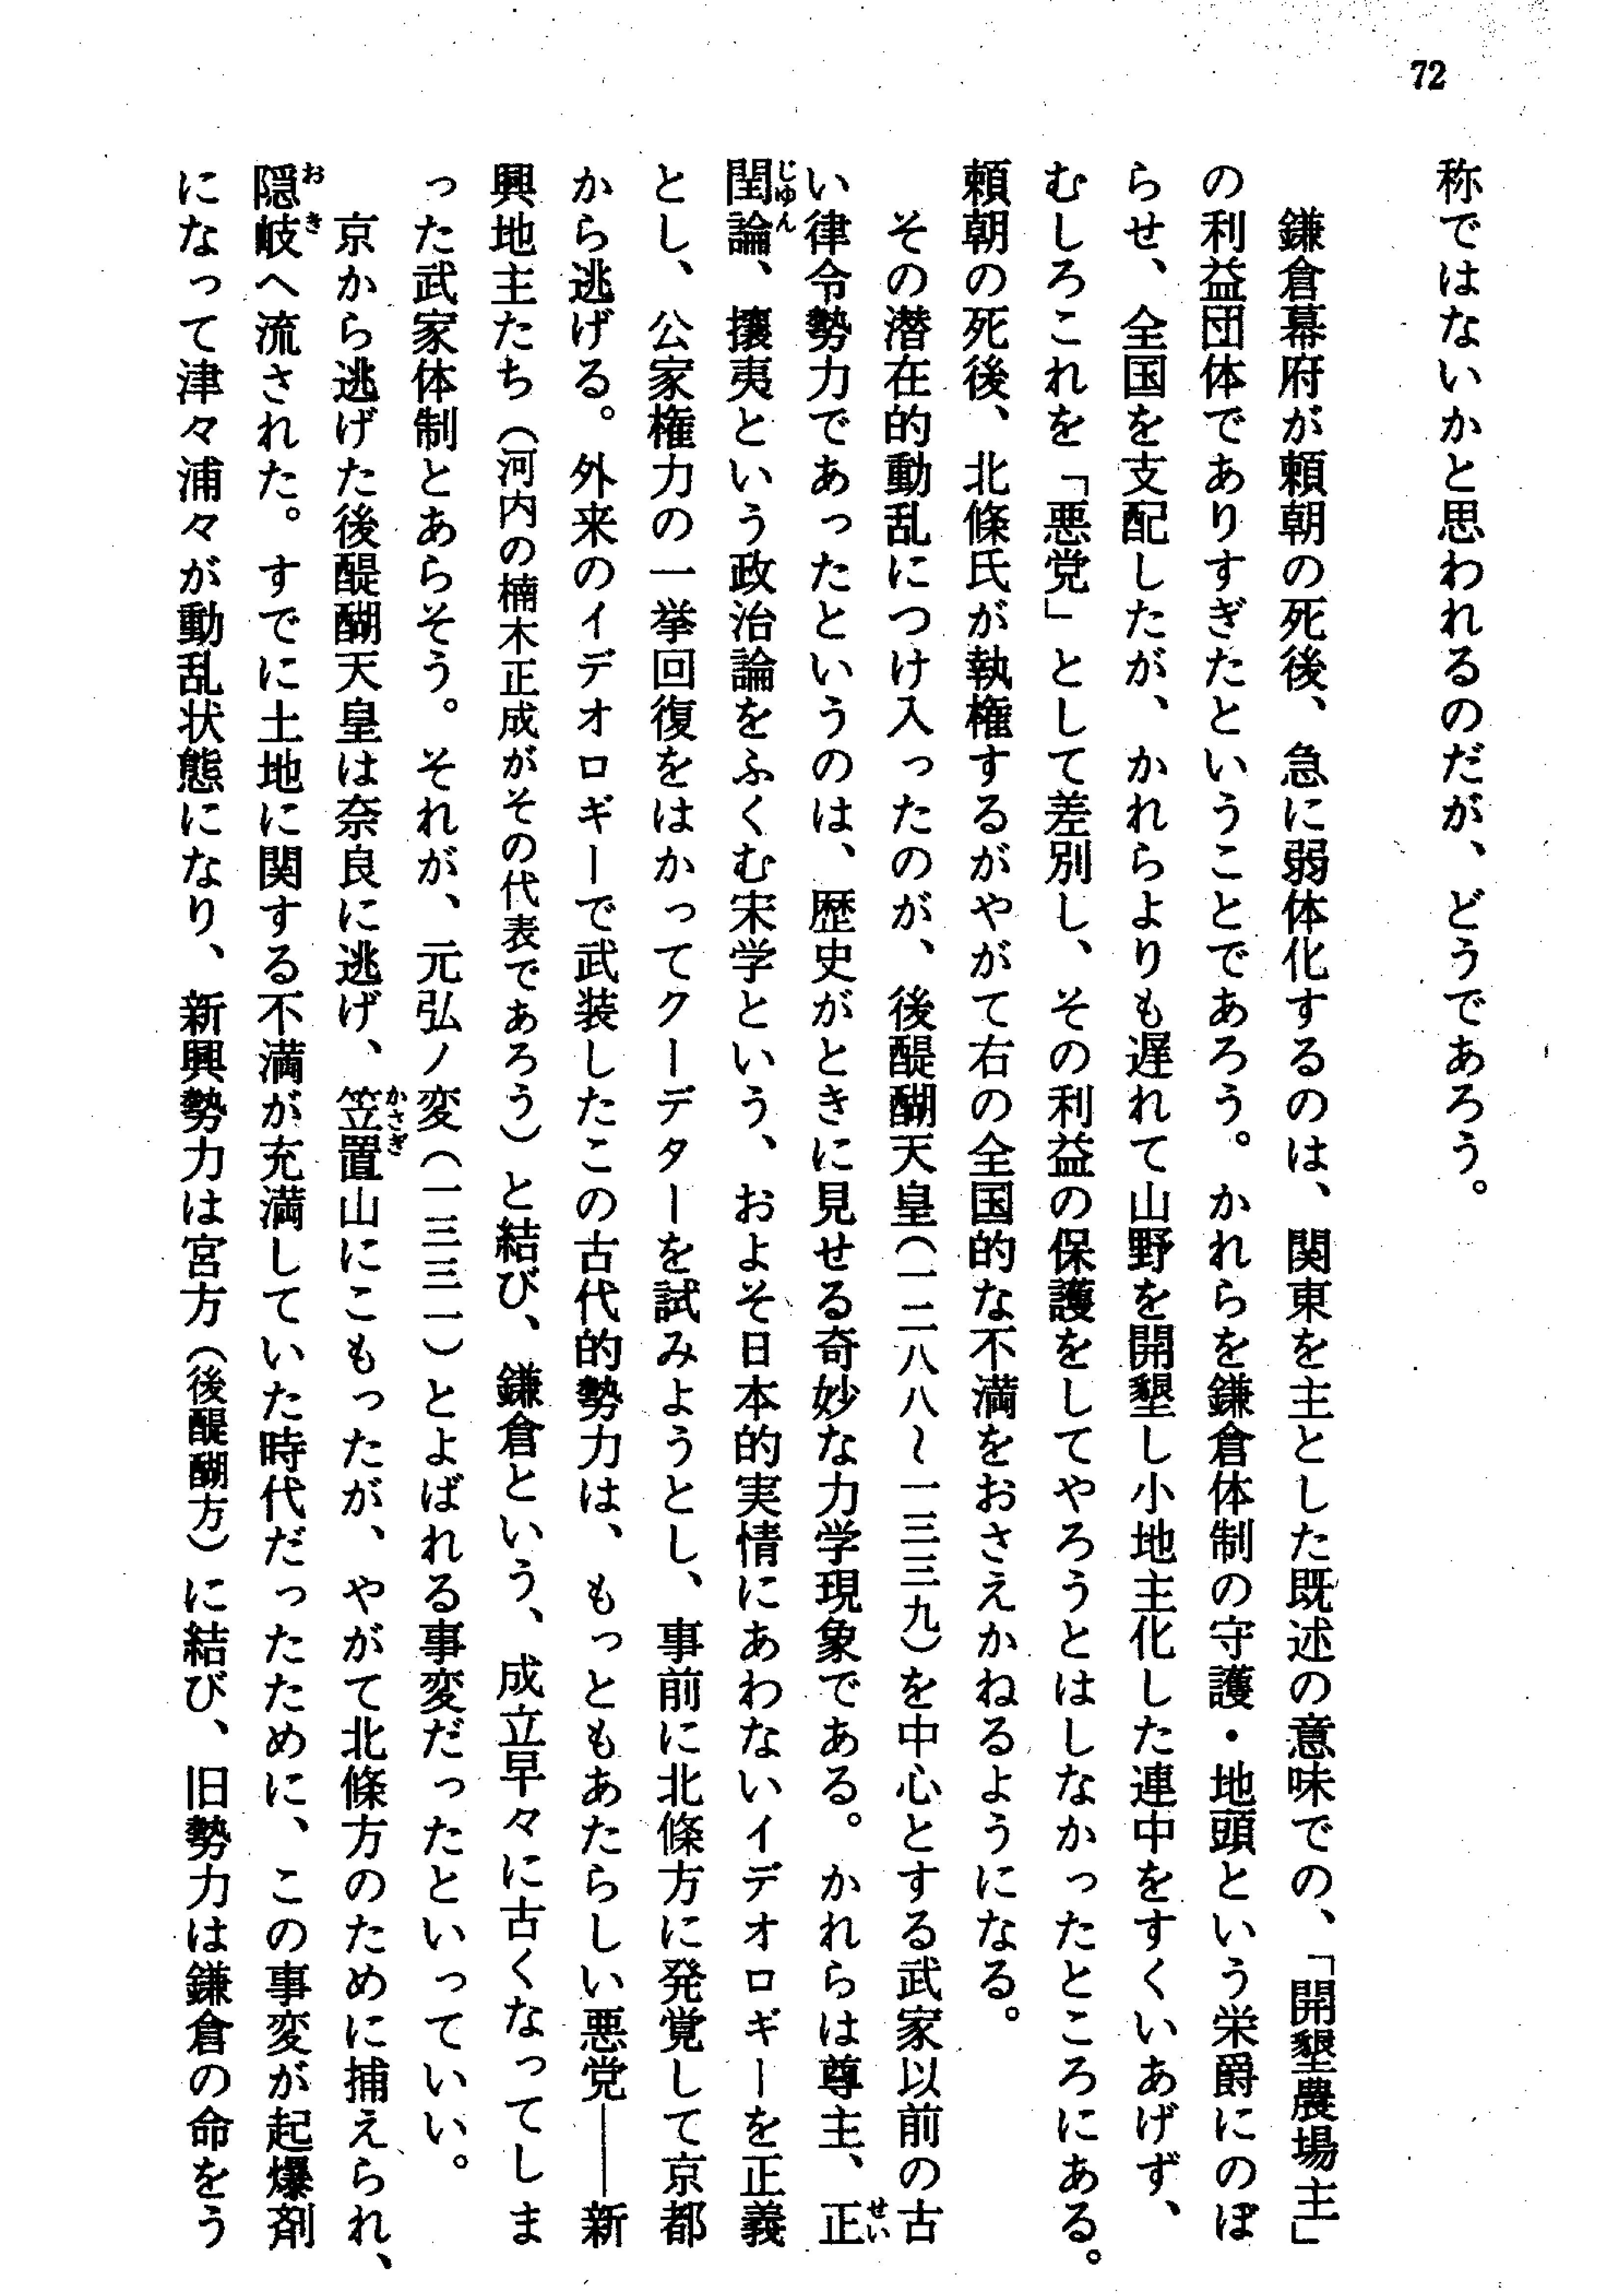 72
称ではないかと思われるのだが、どうであろう。
鎌倉幕府が頼朝の死後、急に弱体化するのは、関東を主とした既述の意味での、「開墾農場主」
の利益団体でありすぎたということであろう。かれらを鎌倉体制の守護・地頭という栄爵にのぼ
らせ、全国を支配したが、かれらよりも遅れて山野を開墾し小地主化した連中をすくいあげず、
むしろこれを「悪党」として差別し、その利益の保護をしてやろうとはしなかったところにある。
頼朝の死後、北條氏が執権するがやがて右の全国的な不満をおさえかねるようになる。
その潜在的動乱につけ入ったのが、後醍醐天皇（一二八八〜一三三九）を中心とする武家以前の古
い律令勢力であったというのは、歴史がときに見せる奇妙な力学現象である。かれらは尊主、正せい
閏じゅん論、攘夷という政治論をふくむ宋学という、およそ日本的実情にあわないイデオロギーを正義
とし、公家権力の一挙回復をはかってクーデターを試みようとし、事前に北條方に発覚して京都
から逃げる。外来のイデオロギーで武装したこの古代的勢力は、もっともあたらしい悪党――新
興地主たち（河内の楠木正成がその代表であろう）と結び、鎌倉という、成立早々に古くなってしま
った武家体制とあらそう。それが、元弘ノ変（一三三一）とよばれる事変だったといっていい。
京から逃げた後醍醐天皇は奈良に逃げ、笠置かさぎ山にこもったが、やがて北條方のために捕えられ、
隠岐おきへ流された。すでに土地に関する不満が充満していた時代だったために、この事変が起爆剤
になって津々浦々が動乱状態になり、新興勢力は宮方（後醍醐方）に結び、旧勢力は鎌倉の命をう